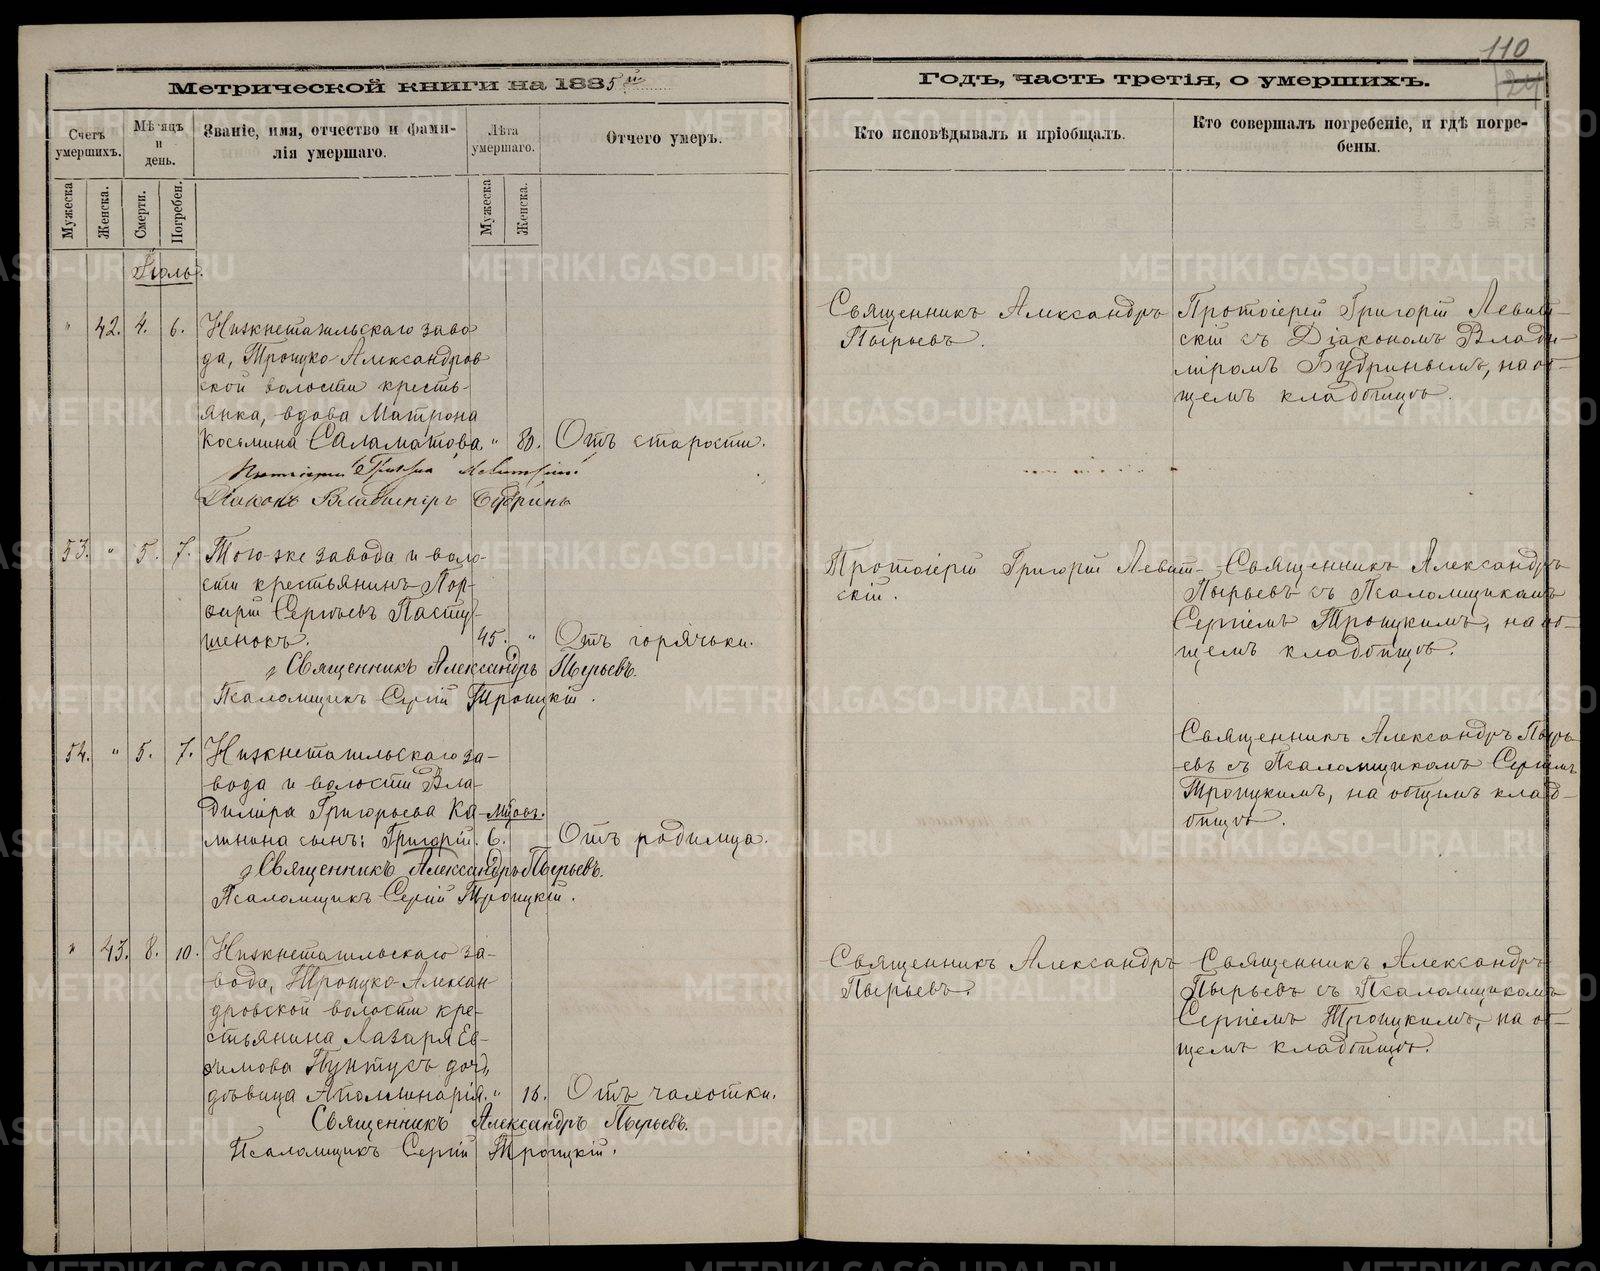 110
24
Метрической книги на 1885й
Годъ, часть третія, о умершихъ.
Счетъ умершихъ.
Мѣсяцъ и день.
Званіе, имя, отчество и фами-
лія умершаго.
Лѣта умершаго.
Отчего умеръ.
Кто исповѣдывалъ и пріобщалъ.
Кто совершалъ погребеніе, и гдѣ погре-
бены.
Мужеска
Женска.
Смерти.
Погребен.
Мужеска
Женска.
Іюль.
" 42. 4. 6. Нижнетагильскаго заво
да, Троицко-Александров
ской волости кресть-
янка, вдова Матрона
Косьмина Саламатова. " 80. Отъ старости.
Протоіерей Григорій Левитскій
Діаконъ Владиміръ Будринъ
Священникъ Александръ
Пырьевъ.
Протоіерей Григорій Левит-
скій съ Діакономъ Влади-
міромъ Будринымъ, на об-
щемъ кладбищѣ.
53. " 5. 7. Того-же завода и воло-
сти крестьянинъ Пор-
фирій Сергѣевъ Пасту-
шенокъ. 45. " Отъ горячки.
Священникъ Александръ Пырьевъ.
Псаломщикъ Сергій Троицкій.
Протоіерей Григорій Левит-
скій.
Священникъ Александръ
Пырьевъ съ Псаломщикомъ
Сергіемъ Троицкимъ, на об-
щемъ кладбищѣ.
54. " 5. 7. Нижнетагильскаго за-
вода и волости Вла-
диміра Григорьева Ка- Мѣсяц.
линина сынъ: Григорій. 6. Отъ родимца.
Священникъ Александръ Пырьевъ.
Псаломщикъ Сергій Троицкій.
Священникъ Александръ Пырь-
евъ съ Псаломщикомъ Сергіемъ
Троицкимъ, на общемъ клад-
бищѣ.
" 43. 8. 10. Нижнетагильскаго за-
вода, Троицко-Алексан
дровской волости кре-
стьянина Лазаря Ев-
фимова Пунтусъ дочь,
дѣвица Аполлинарія. " 16. Отъ чахотки.
Священникъ Александръ Пырьевъ.
Псаломщикъ Сергій Троицкій.
Священникъ Александръ
Пырьевъ.
Священникъ Александръ
Пырьевъ съ Псаломщикомъ
Сергіемъ Троицкимъ, на об-
щемъ кладбищѣ.
METRIKI.GASO-URAL.RU